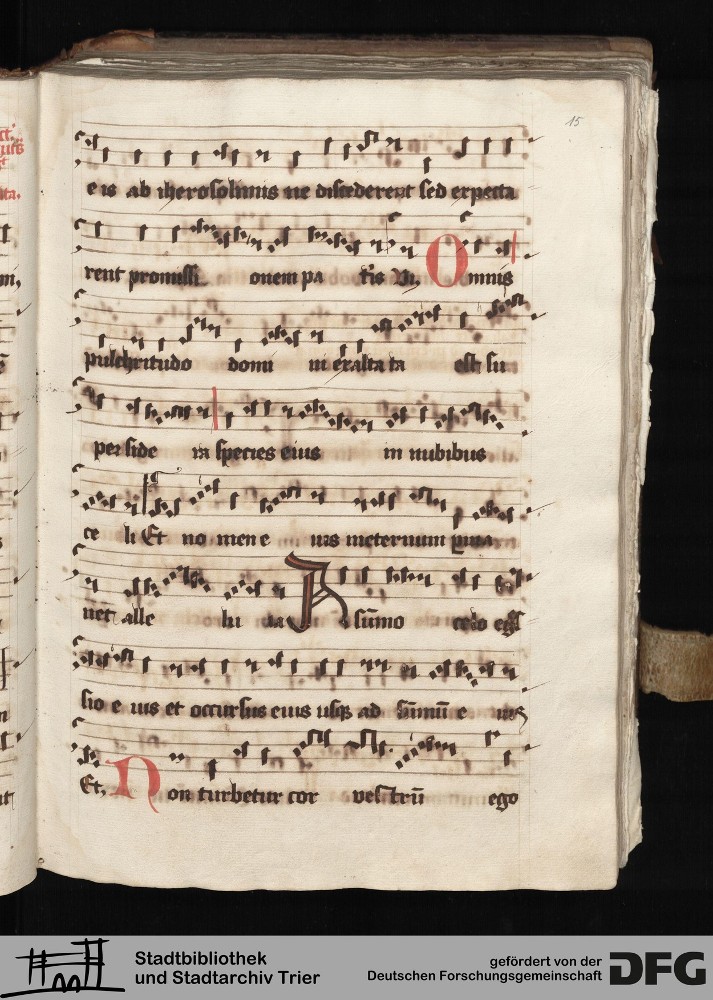 15
eis ab iherosolimis ne discederent sed expecta
rent promissi onem pa tris Vi. Omnis
pulchritudo domi ni exaltata est su
per side ra species eius in nubibus
ce li Et no men e ius ineternum
net alle lu ia A sūmo celo egͣs
sio e ius et occursus eius usqꝫ ad sūmū e ius
Et, Non turbetur cor vestrū ego
Stadtbibliothek
und Stadtarchiv Trier
gefördert von der
Deutschen Forschungsgemeinschaft
DFG